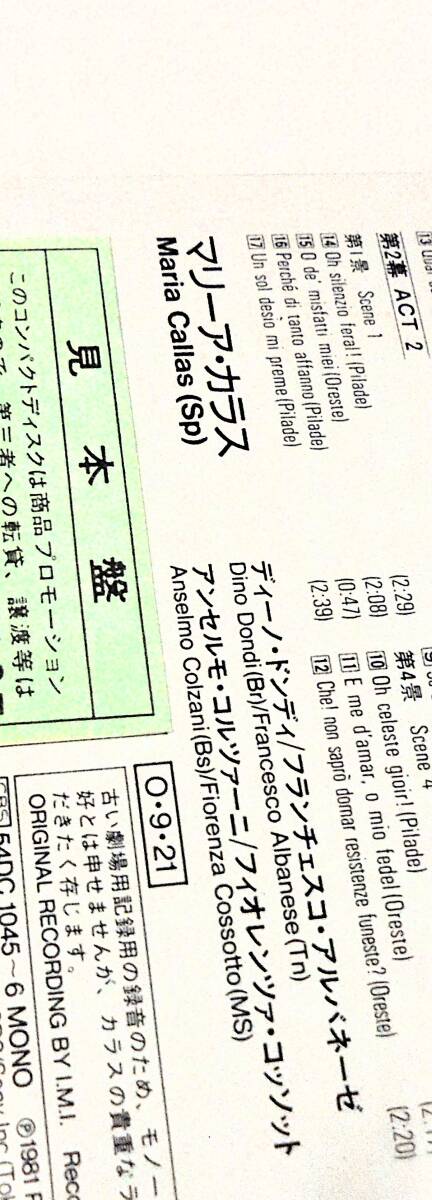 第2幕 ACT 2
第1景 Scene 1
14 Oh silenzio feral! (Pilade)
15 O de' misfatti miei (Oreste)
16 Perché di tanto affanno (Pilade)
17 Un sol desio mi preme (Pilade)
(2:29)
(2:08)
(0:47)
(2:39)
第4景 Scene 4
10 Oh celeste gioir! (Pilade)
11 E me d'amar, o mio fedel (Oreste)
12 Che! non saprò domar resistenze funeste? (Oreste)
(2:20)
マリーア・カラス
Maria Callas (Sp)
ディーノ・ドンディ/フランチェスコ・アルバネーゼ
Dino Dondi (Br)/Francesco Albanese (Tn)
アンセルモ・コルツァーニ/フィオレンツァ・コッソット
Anselmo Colzani (Bs)/Fiorenza Cossotto (MS)
見本盤
このコンパクトディスクは商品プロモーション
第三者への転貸、譲渡等は
O・9・21
古い劇場用記録用の録音のため、モノー
好とは申せませんが、カラスの貴重なラ
だきたく存じます。
ORIGINAL RECORDING BY I.M.I. Reco
54DC 1045~6 MONO ℗1981